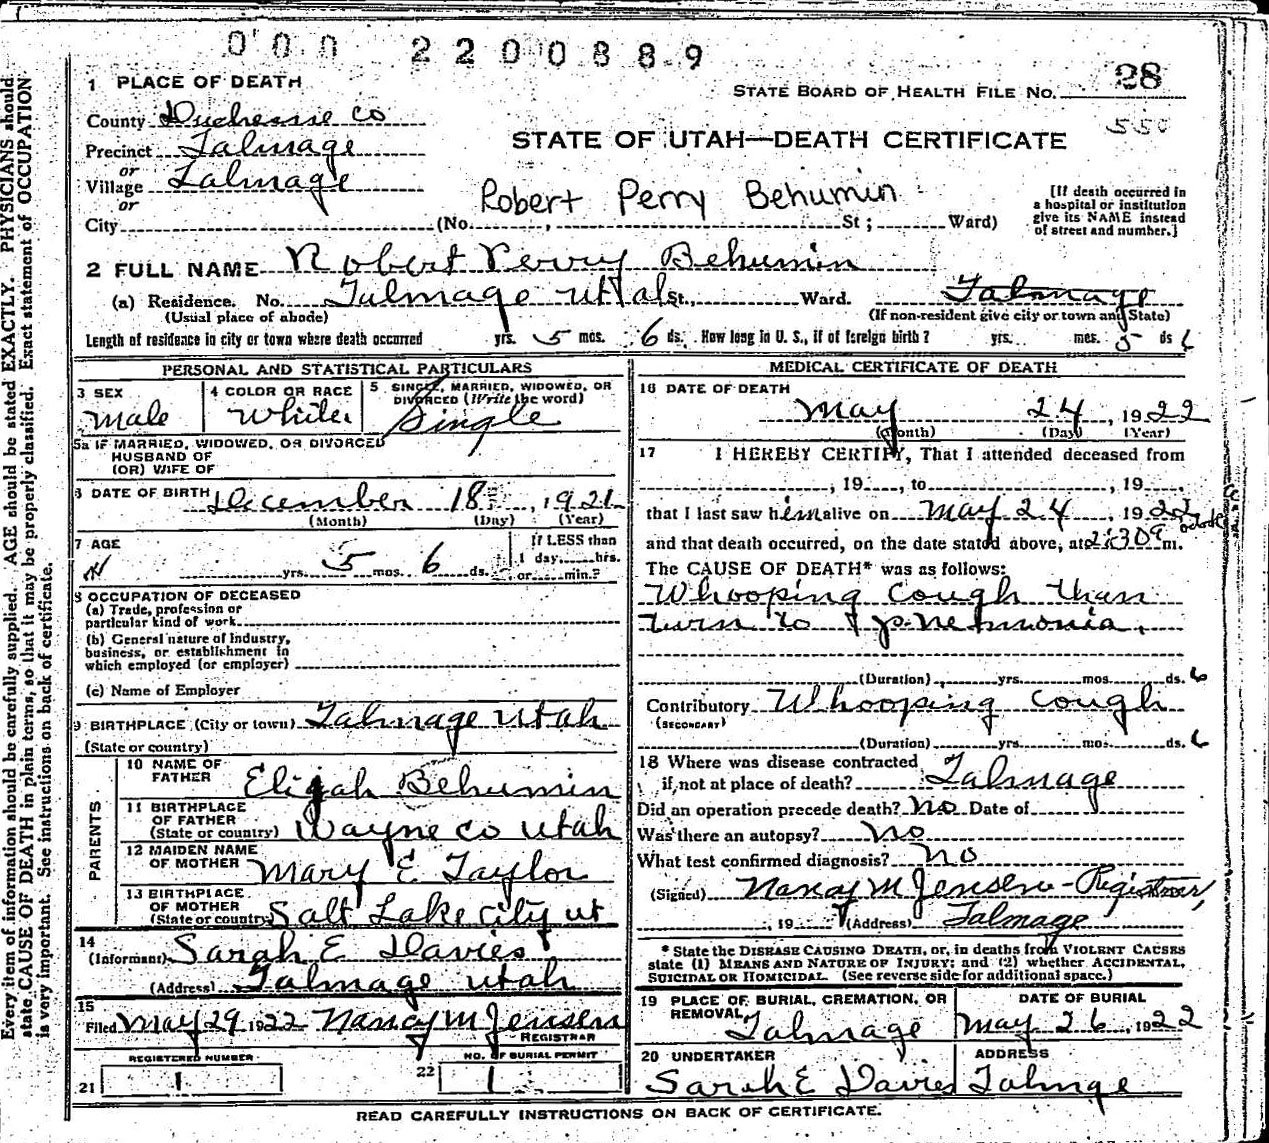 000 2200889
1 PLACE OF DEATH
STATE BOARD OF HEALTH FILE NO. 28
550
County Duchesne Co
STATE OF UTAH—DEATH CERTIFICATE
Precinct Talmage
or
Village Talmage
or
Robert Perry Behumin
City (No. , St; Ward)
[If death occurred in
a hospital or institution
give its NAME instead
of street and number.]
2 FULL NAME Robert Perry Behumin
(a) Residence. No. Talmage Utah St., Ward. Talmage
(Usual place of abode) (If non-resident give city or town and State)
Length of residence in city or town where death occurred yrs. 5 mos. 6 ds. How long in U. S., if of foreign birth? yrs. mos. 5 ds 6
PERSONAL AND STATISTICAL PARTICULARS
3 SEX
Male
4 COLOR OR RACE
White
5 SINGLE, MARRIED, WIDOWED, OR
DIVORCED (Write the word)
Single
5a IF MARRIED, WIDOWED, OR DIVORCED
HUSBAND OF
(OR) WIFE OF
6 DATE OF BIRTH December 18, 1921
(Month) (Day) (Year)
7 AGE
yrs. 5 mos. 6 ds.
If LESS than
1 day, hrs.
or min.?
8 OCCUPATION OF DECEASED
(a) Trade, profession or
particular kind of work
(b) General nature of industry,
business, or establishment in
which employed (or employer)
(c) Name of Employer
9 BIRTHPLACE (City or town) Talmage Utah
(State or country)
PARENTS
10 NAME OF
FATHER Elijah Behumin
11 BIRTHPLACE
OF FATHER
(State or country) Wayne Co Utah
12 MAIDEN NAME
OF MOTHER Mary E Taylor
13 BIRTHPLACE
OF MOTHER
(State or country) Salt Lake City ut
14
(Informant) Sarah E Davies
(Address) Talmage Utah
15
Filed May 29, 1922 Nancy M Jensen
REGISTRAR
REGISTERED NUMBER
21 1
NO. OF BURIAL PERMIT
22 1
MEDICAL CERTIFICATE OF DEATH
16 DATE OF DEATH
May 24, 1922
(Month) (Day) (Year)
17 I HEREBY CERTIFY, That I attended deceased from
, 19 , to , 19
that I last saw him alive on May 24, 1922
oclock
and that death occurred, on the date stated above, at 2:30 a m.
The CAUSE OF DEATH* was as follows:
Whooping Cough than
turn to pnemonia.
(Duration) yrs. mos. ds. 6
Contributory Whooping Cough
(SECONDARY)
(Duration) yrs. mos. ds. 6
18 Where was disease contracted
if not at place of death? Talmage
Did an operation precede death? No Date of
Was there an autopsy? no
What test confirmed diagnosis? no
(Signed) Nancy M Jensen - Registrar,
, 19 (Address) Talmage
* State the DISEASE CAUSING DEATH, or, in deaths from VIOLENT CAUSES
state (1) MEANS AND NATURE OF INJURY; and (2) whether ACCIDENTAL,
SUICIDAL OR HOMICIDAL. (See reverse side for additional space.)
19 PLACE OF BURIAL, CREMATION, OR
REMOVAL Talmage
DATE OF BURIAL
May 26, 1922
20 UNDERTAKER
Sarah E Davies
ADDRESS
Talmge
READ CAREFULLY INSTRUCTIONS ON BACK OF CERTIFICATE.
Every item of information should be carefully supplied. AGE should be stated EXACTLY. PHYSICIANS should
state CAUSE OF DEATH in plain terms, so that it may be properly classified. Exact statement of OCCUPATION
is very important. See instructions on back of certificate.